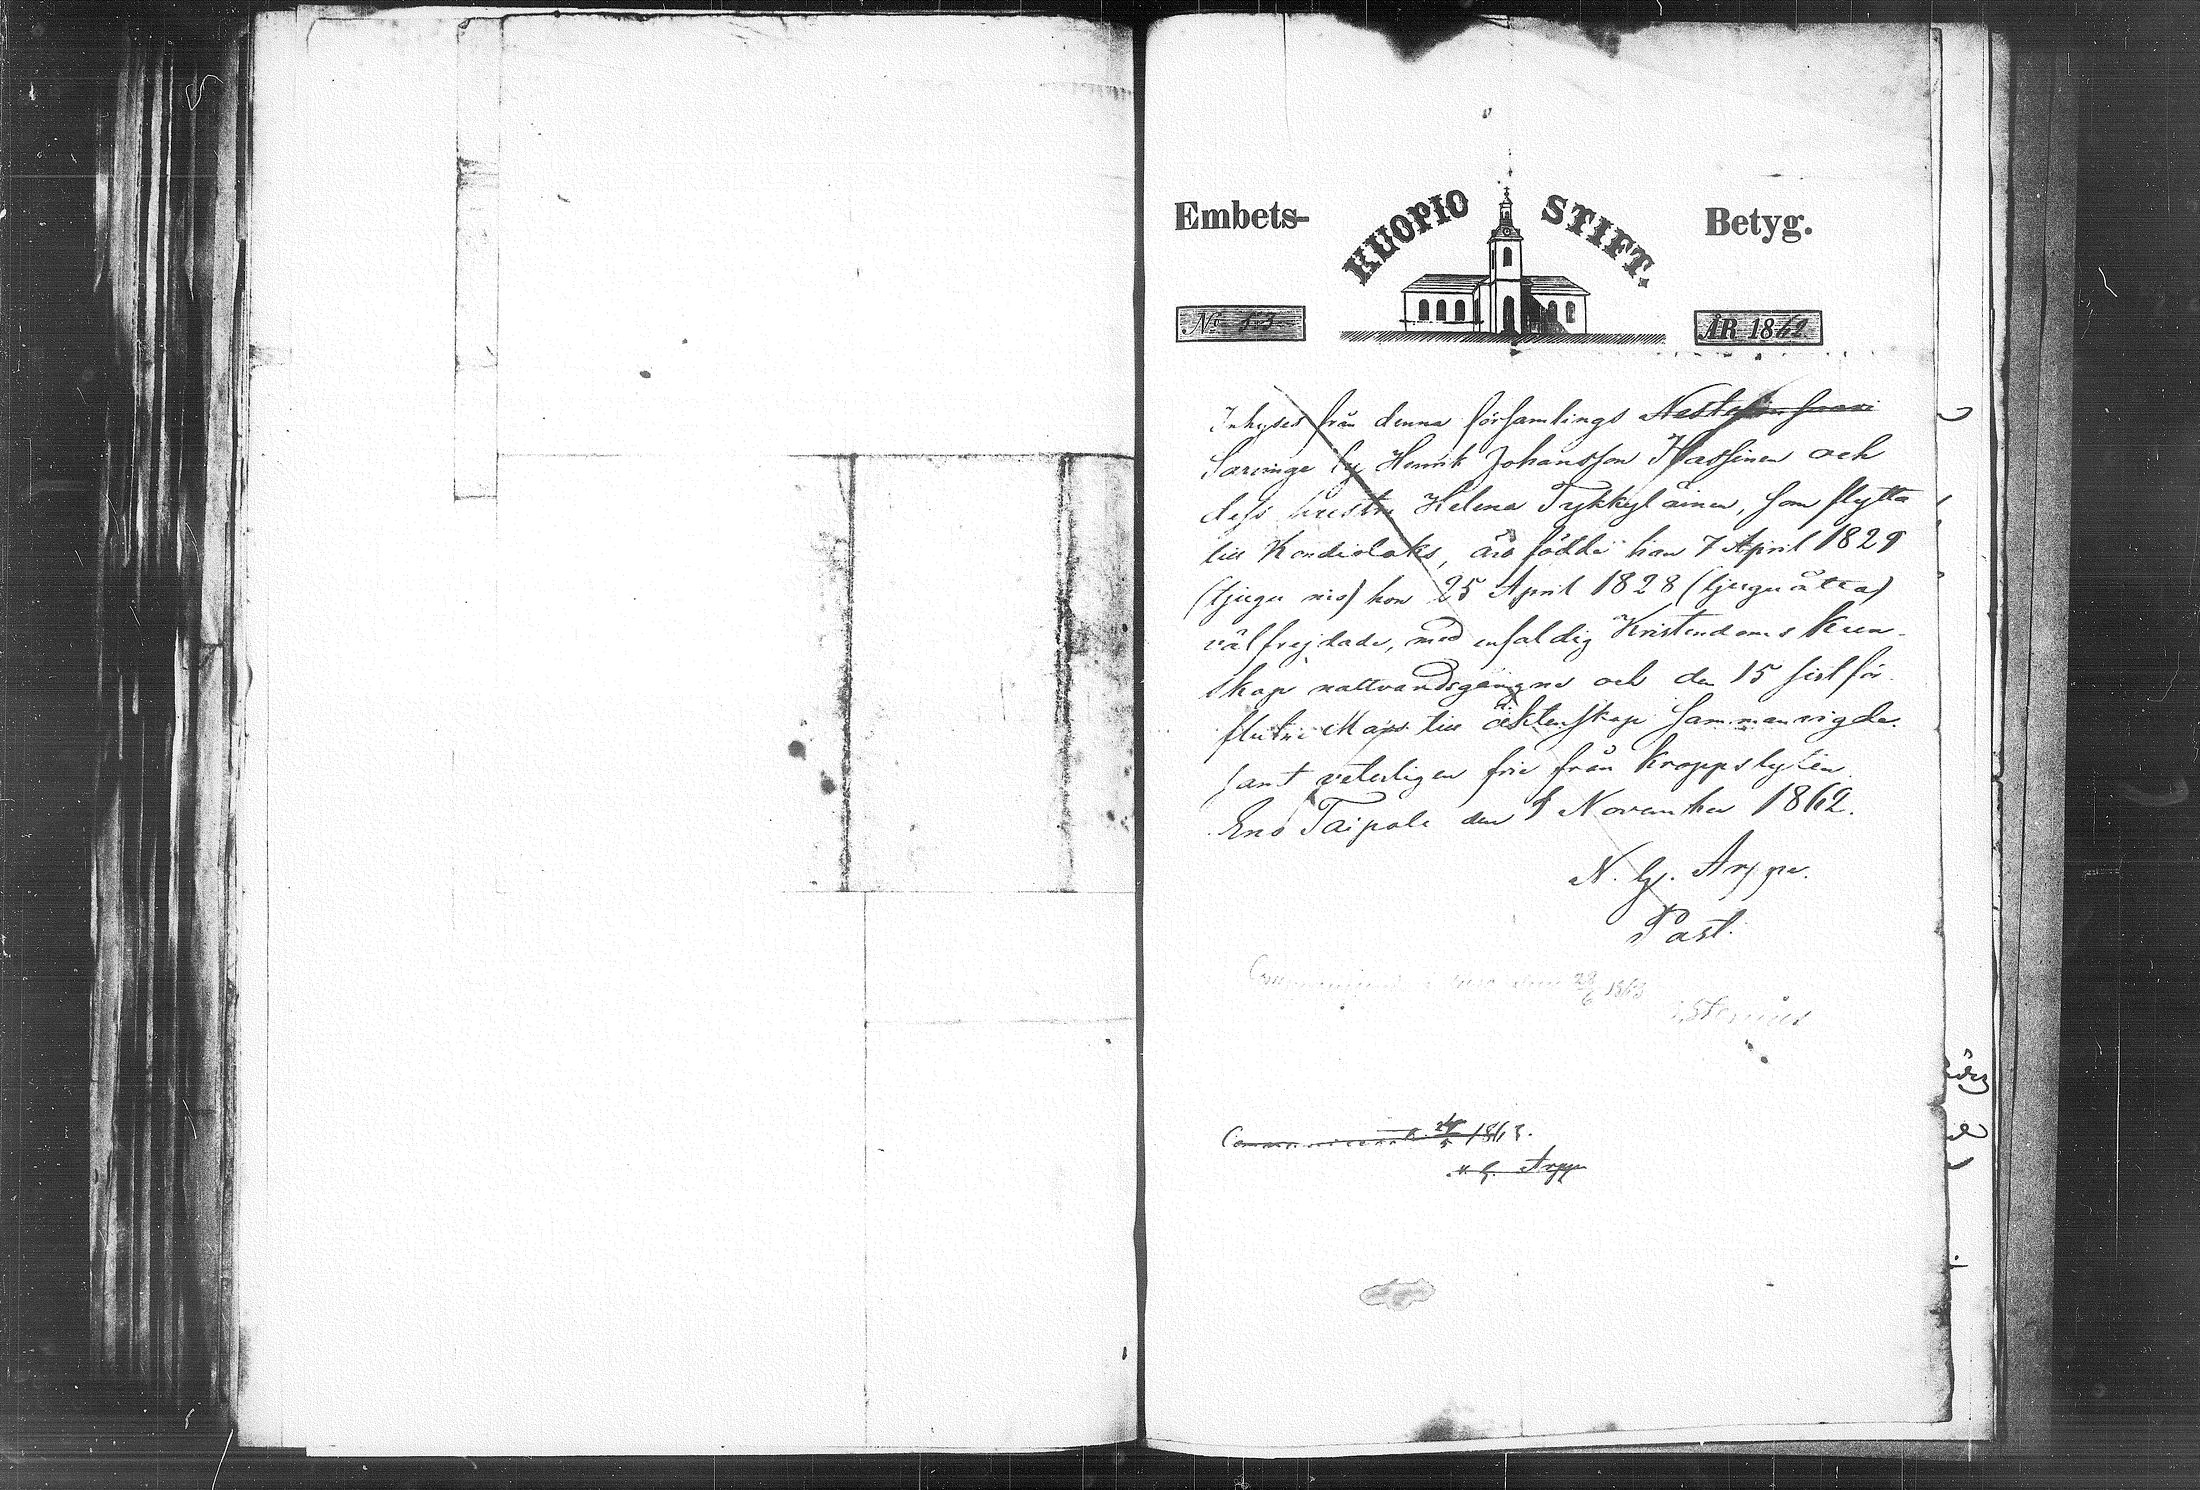 Embets- KUOPIO STIFT. Betyg.
No 83 ÅR 1862
Inhyses från denna församlings
Sarvinge by Henrik Johansson Hassinen och
dess hustru Helena Tykkyläinen, som flytta
till Kondiolaks, äro födde han 7 April 1829
(tjugu nio) hon 25 April 1828 (tjuguåtta)
välfrejdade, med enfaldig Kristendoms kun-
skap nattvardsgångne och den 15 sist för-
flutne Mars till äktenskap sammanvigde.
samt veterligen frie från kroppslyten.
Eno Taipale den November 1862.
N. G. Arppe.
Past.
1863
1863.
N. G. Arppe